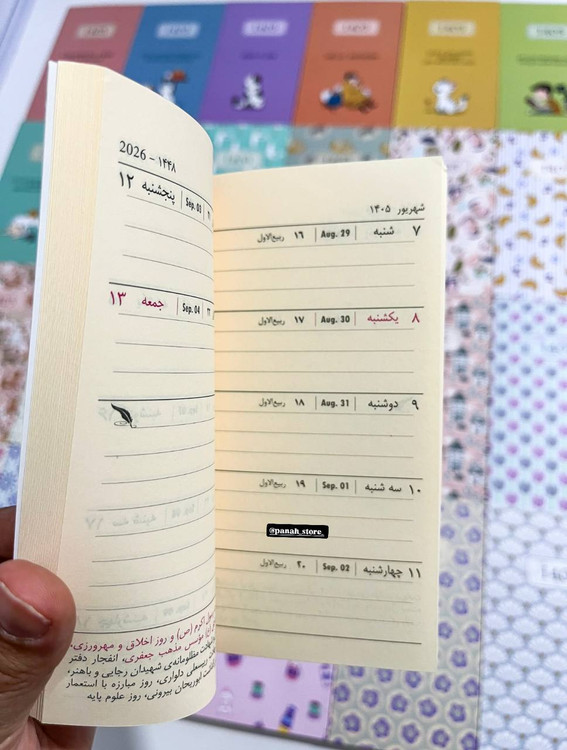 شهریور ۱۴۰۵
۷ شنبه | Aug. 29 | ۱۶ ربیع‌الاول
۸ یکشنبه | Aug. 30 | ۱۷ ربیع‌الاول
۹ دوشنبه | Aug. 31 | ۱۸ ربیع‌الاول
۱۰ سه شنبه | Sep. 01 | ۱۹ ربیع‌الاول
@panah_store_
۱۱ چهارشنبه | Sep. 02 | ۲۰ ربیع‌الاول
2026 - ۱۴۴۸
۱۲ پنجشنبه | Sep. 03
۱۳ جمعه | Sep. 04
رسول اکرم (ص) و روز اخلاق و مهرورزی،
مؤسس مذهب جعفری،
مظلومانه‌ی شهیدان رجایی و باهنر، انفجار دفتر
دلواری، روز مبارزه با استعمار
ابوریحان بیرونی، روز علوم پایه